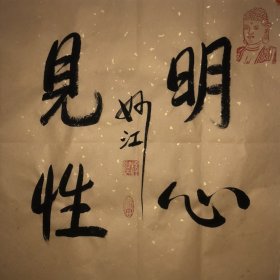 明心
見性
妙江